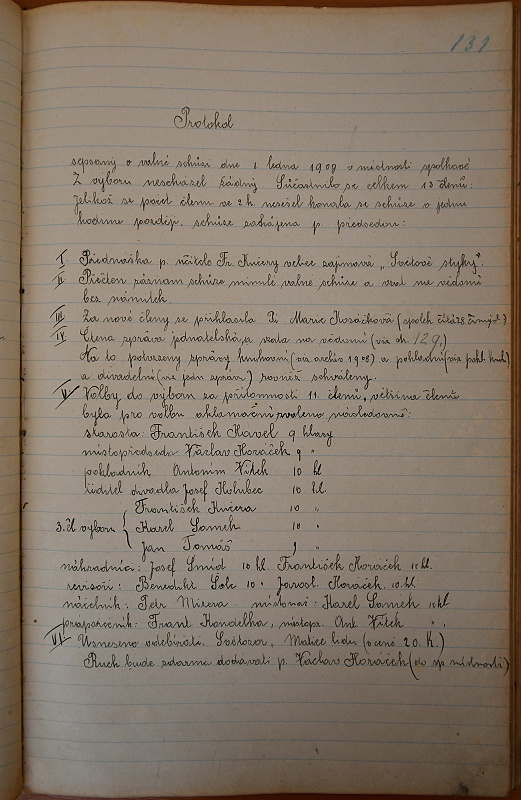 131
Protokol
sepsaný o valné schůzi dne 1 ledna 1908 v místnosti spolkové
Z výboru nescházel žádný. Súčastnilo se celkem 13 členů.
Jelikož se počet členů ve 2 h. nesešel konala se schůze o jednu
hodinu později, schůze zahájena p. předsedou:
I Přednáška p. učitele Fr. Kučery velice zajímavá „Světové styky“
II Přečten záznam schůze minulé valné schůze a vzat na vědomí
bez námitek.
III Za nové členy se přihlásila Sl. Marie Horáčková (spolek
IV Čtena zpráva jednatelská, a vzata na vědomí (viz str. 129.)
Na to podvozeny zprávy knihovní (viz archiv 1908) a pokladní (viz pokl. knih.)
a divadelní (viz jedn. zpráv.) rovněž schváleny.
V Volby do výboru za přítomnosti 11 členů, většina členů
byla pro volbu aklamační zvoleno následovně:
starosta: František Havel 9 hlasy
místopředseda Václav Horáček 9 "
pokladník Antonín Vítek 10 hl
ředitel divadla Josef Holubec 10 hl.
František Kučera 10 "
3. čl. výboru { Karel Samek 10 "
Jan Tomáš "
náhradníci: Josef Šmíd 10 hl. František Horáček hl.
revisoři: Benedikt Šolc 10 " Jarosl. Horáček. 10 hl
náčelník: Petr Mizera místonáč: Karel Samek hl
praporečník: Frant. Kondelka, nástup. Ant. Vítek " "
VI Usneseno odebírati, Světozor, Matice lidu (v ceně 20 K.)
Ruch bude zdarma dodávati p. Václav Horáček (do sp. místnosti)